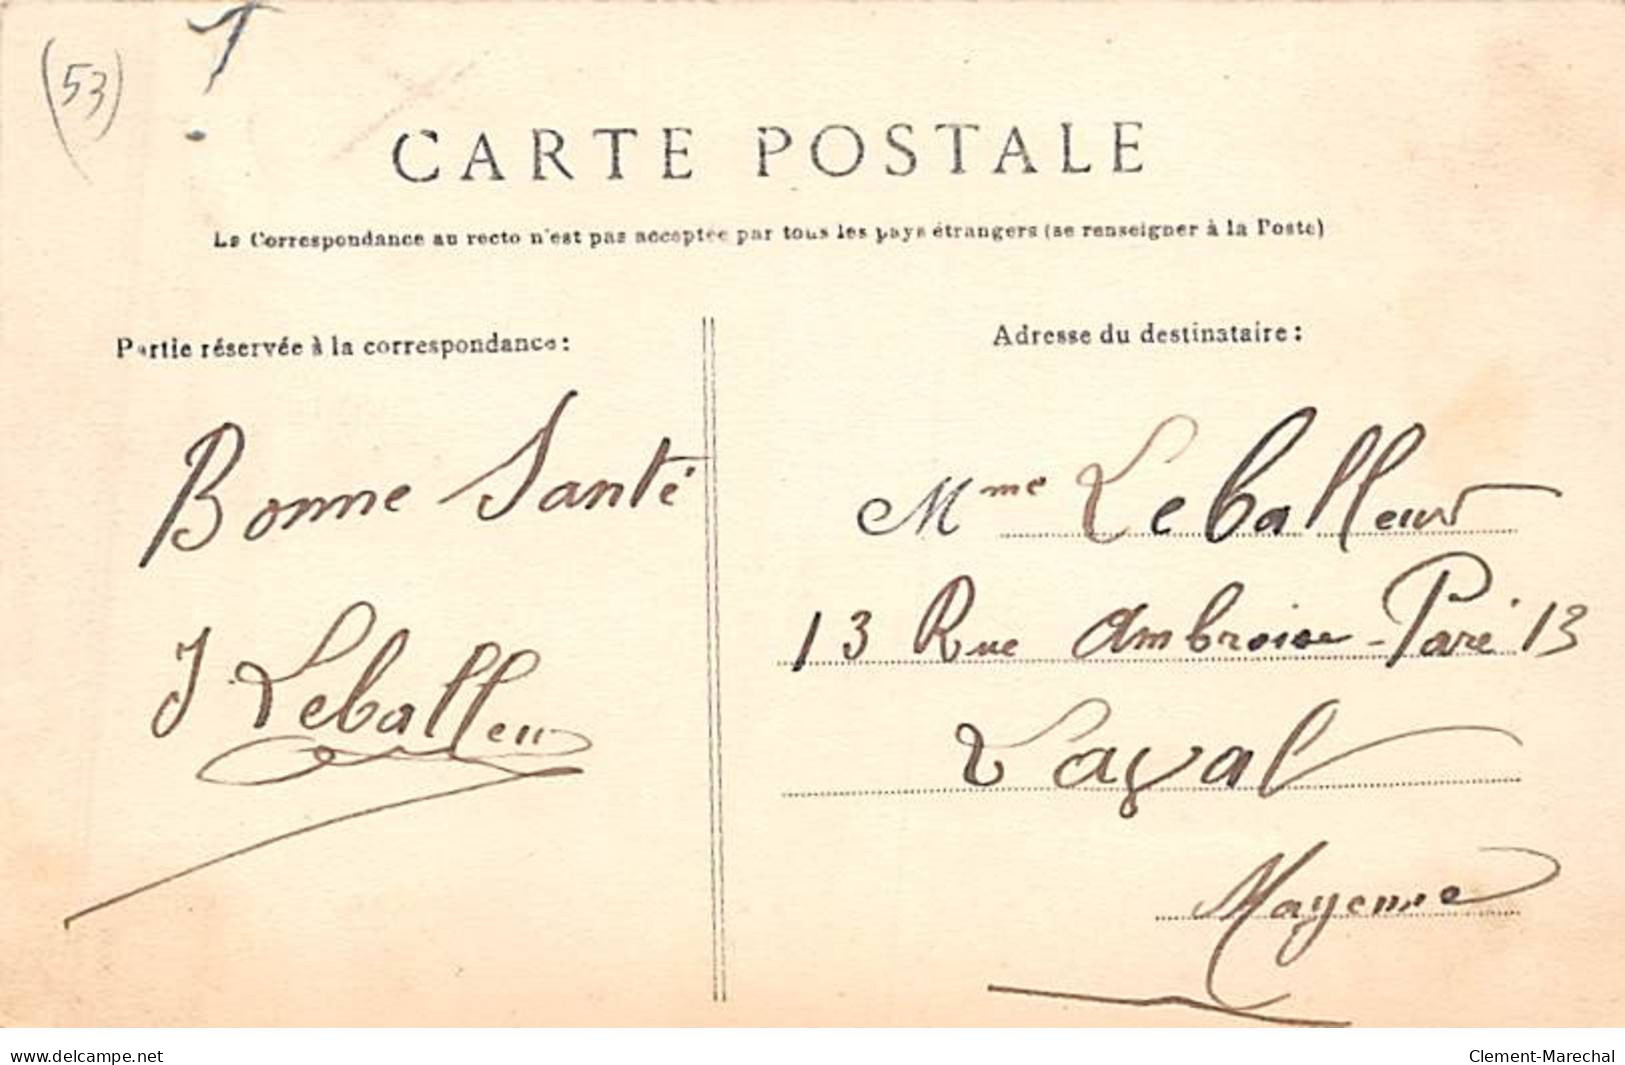 (53)
T
CARTE POSTALE
La Correspondance au recto n'est pas acceptée par tous les pays étrangers (se renseigner à la Poste)
Partie réservée à la correspondance:
Bonne Santé
J Leballeur
Adresse du destinataire:
Mme Leballeur
13 Rue Ambroise-Paré 13
Laval
Mayenne
www.delcampe.net
Clement-Marechal